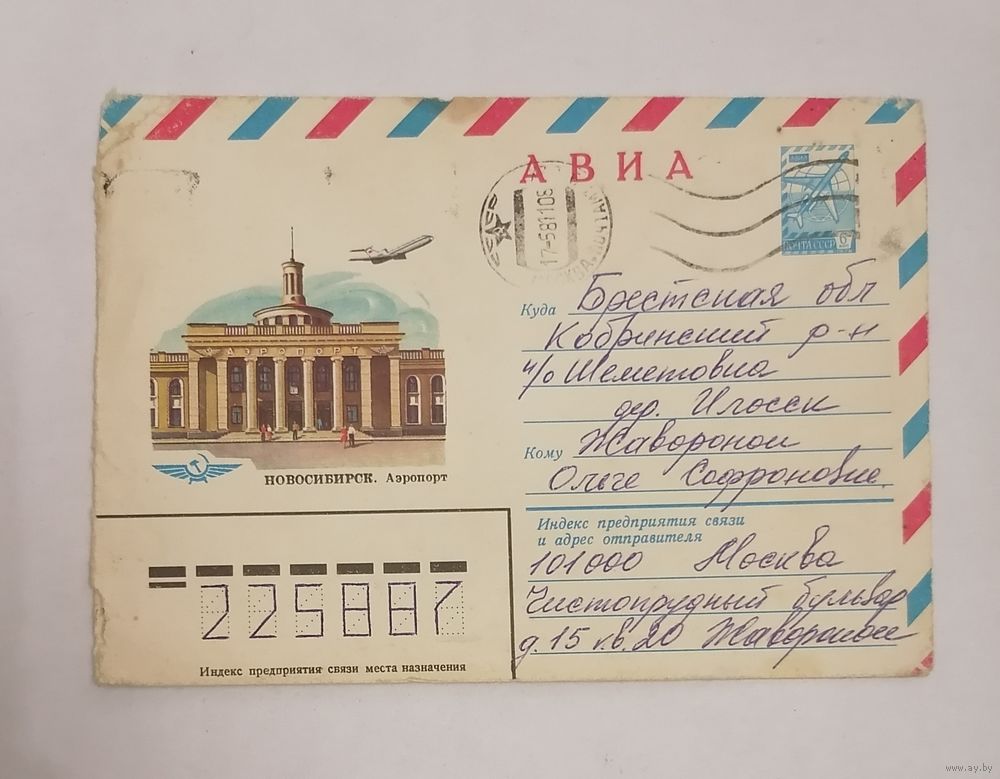 АВИА
АВИА
ПОЧТА СССР 6
17-5811108
АЭРОПОРТ
НОВОСИБИРСК. Аэропорт
Куда Брестская обл
Кобринский р-н
п/о Шеметовка
дер. Илосск
Кому Жаворонок
Ольге Софроновне.
Индекс предприятия связи
и адрес отправителя
101000 Москва
Чистопрудный бульвар
д. 15 кв. 20 Жаворонок
225887
Индекс предприятия связи места назначения
www.ay.by